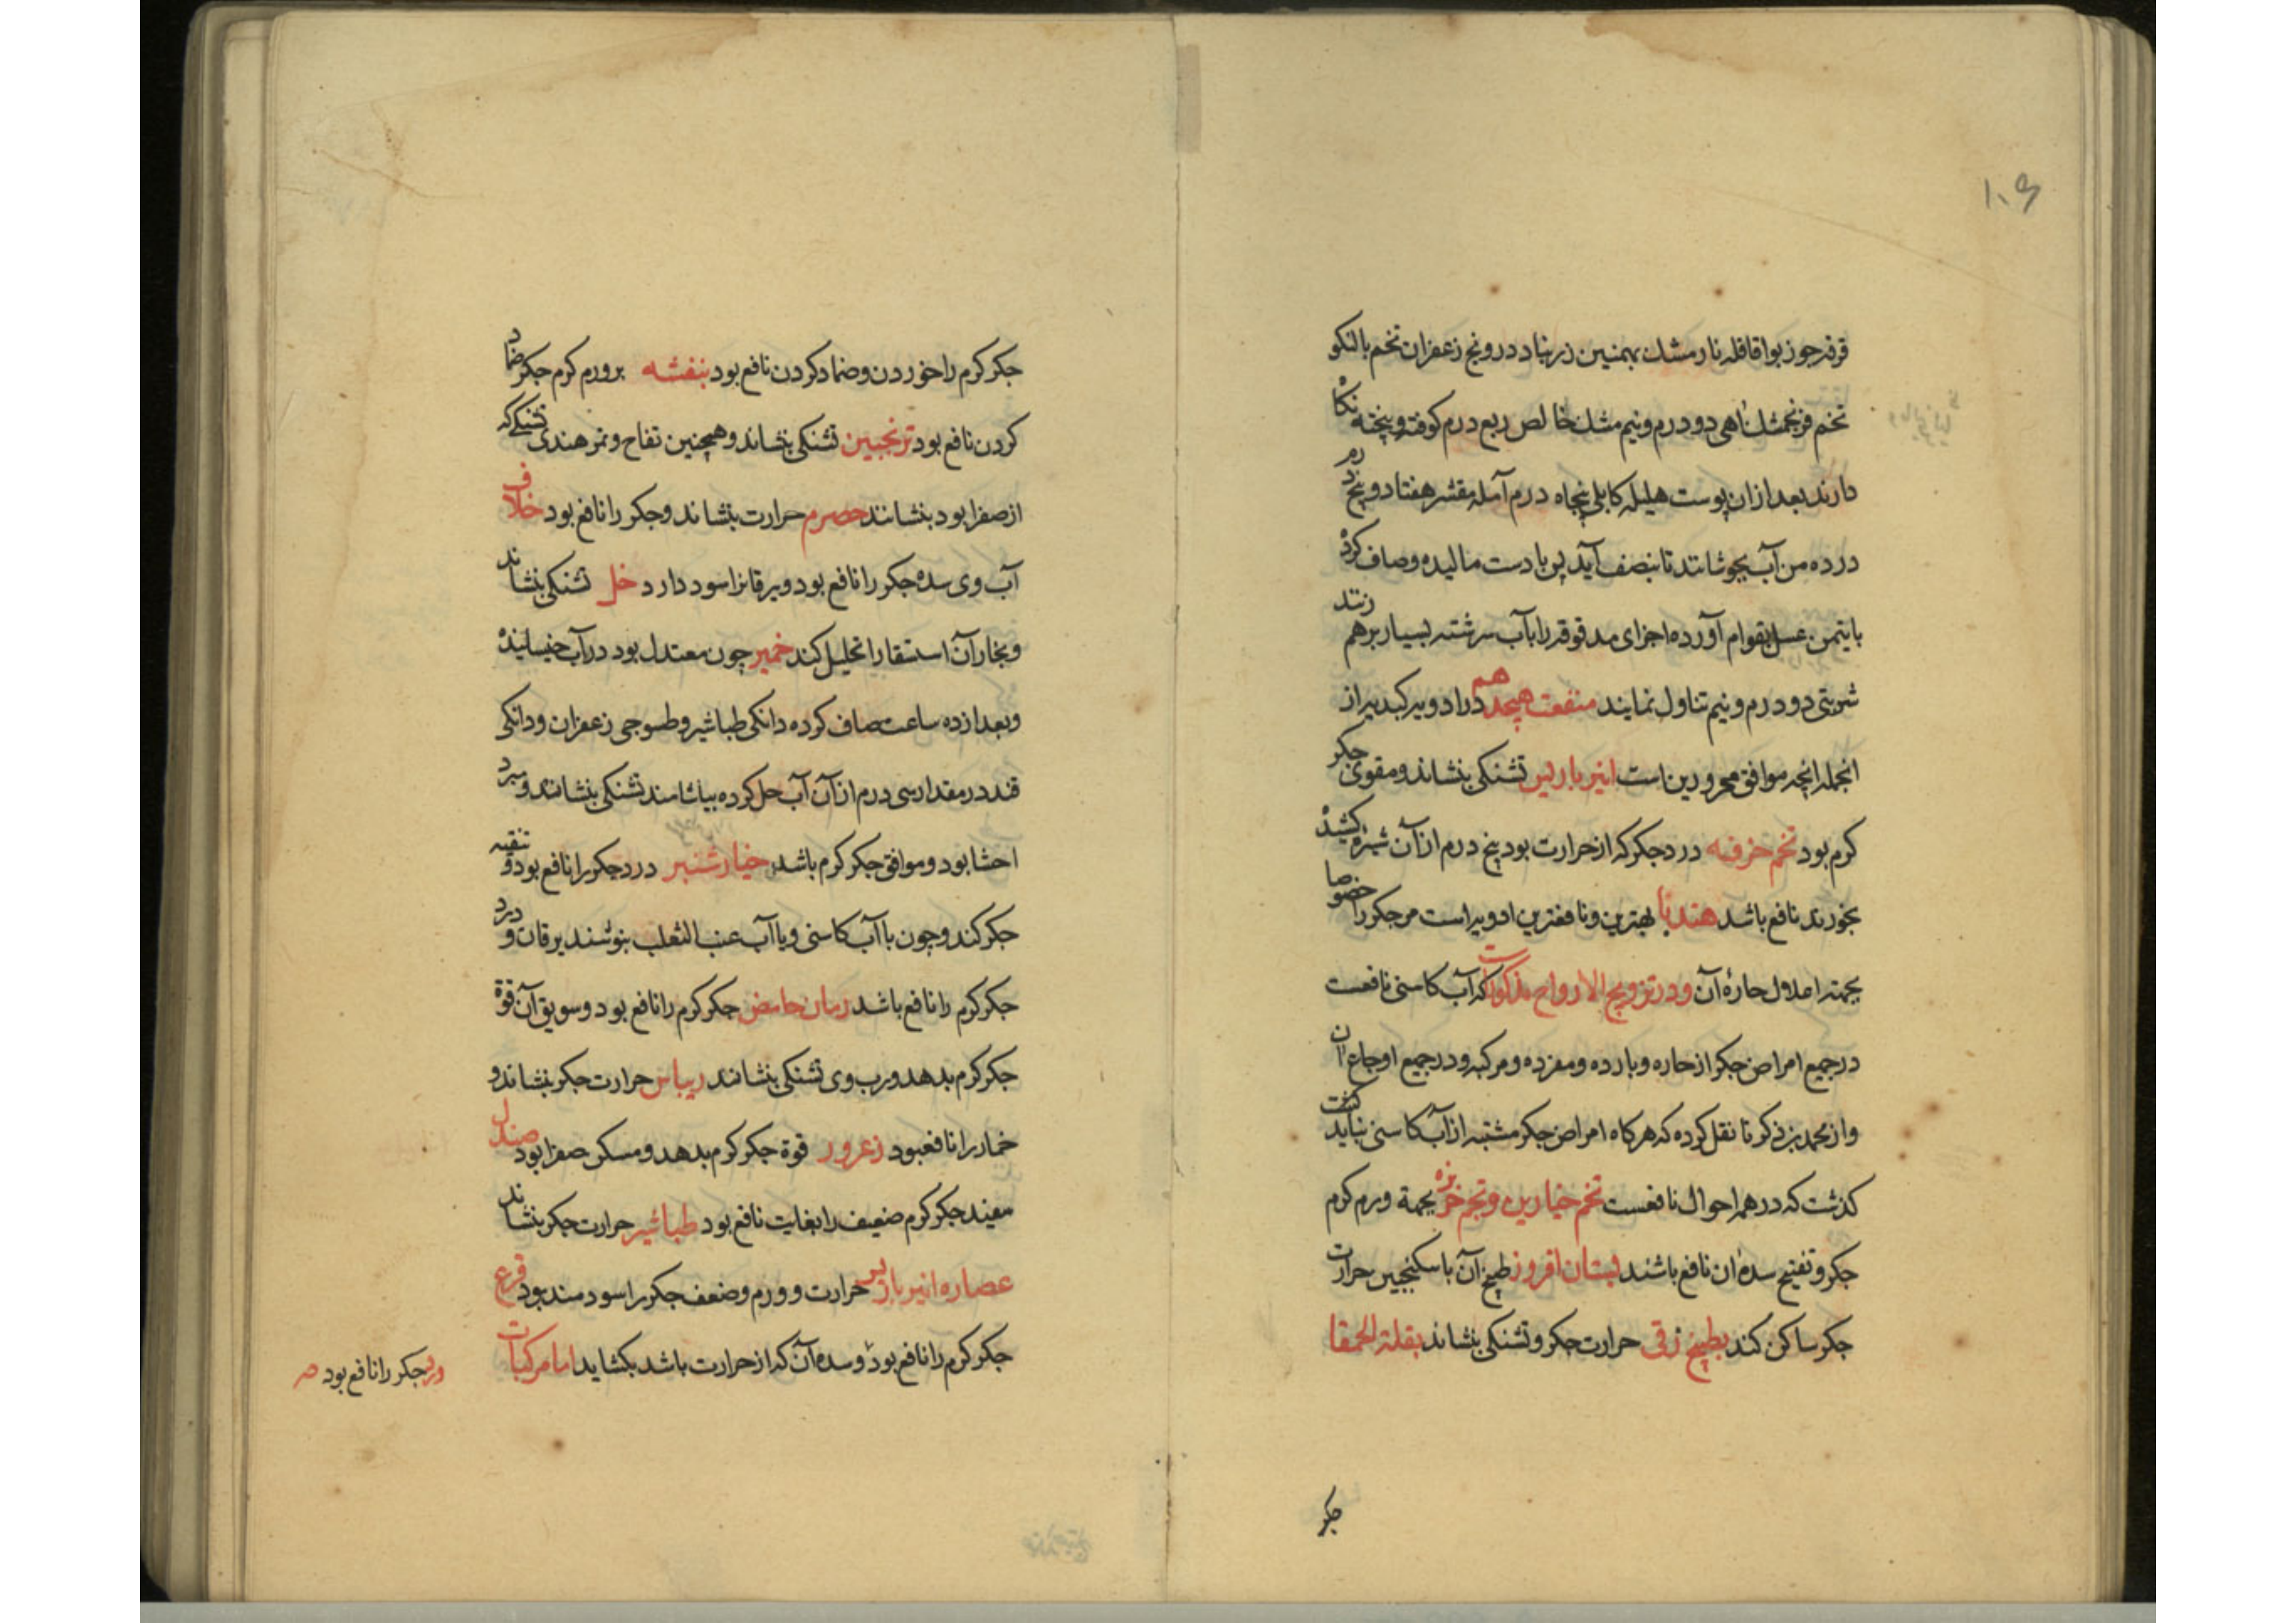 ۱۰۶
قرفه جوز بوا قاقله نارمشک بهمنین زرنباد درونج زعفران تخم بالنکو
تخم فرنجمشک اهی دو درم و نیم مشک خالص ربع درم کوفته و بیخته نکاه
دارند بعد از ان پوست هلیله کابلی پنجاه درم آمله مقشر هفتاد و پنج درم
در ده من آب بجوشانند تا بنصف آید پس با دست مالیده و صاف کرده
با یتمن عسل بقوام آورده اجزای مدقوقه را بآب سرشته بسیار برهم زنند
شربتی دو درم و نیم تناول نمایند منفعت هیجدهم در ادویه کبدیه از
انجمله انچه موافق محرورین است انبر باریس تشنکی بنشاند و مقوی جکر
کرم بود تخم خرفه درد جکر که از حرارت بود پنج درم از آن شیره کشیده
بخورند نافع باشد هندبا بهترین و نافعترین ادویه است مر جکر را خصوصا
بجهته اعلال حارهٔ آن و در ترویح الارواح مذکور است که آب کاسنی نافعست
در جمیع امراض جکر از حاره و بارده و مفرده و مرکبه و در جمیع اوجاع ان
و از محمد بن ذکریا نقل کرده که هرکاه امراض جکر مشتبه از آب کاسنی نباید کذشت
کذشت که در همه احوال نافعست تخم خیارین و تخم خربزه بجهة ورم کرم
جکر و تفتیح سدهٔ ان نافع باشند بستان افروز طبخ آن با سکنجبین حرارت
جکر ساکن کند بطیخ زقی حرارت جکر و تشنکی بنشاند بقلة الحمقا
جکر
جکر کرم را خوردن و ضماد کردن نافع بود بنفشه بر ورم کرم جکر ضماد
کردن نافع بود ترنجبین تشنکی بنشاند و همچنین تفاح و تمر هندی تشنکی که
از صفرا بود بنشانند حصرم حرارت بنشاند و جکر را نافع بود خلاف
آب وی سدهٔ جکر را نافع بود و یرقانرا سود دارد خل تشنکی بنشاند
و بخار آن استسقا را تحلیل کند خمیر چون معتدل بود در آب خیسانیده
و بعد از ده ساعت صاف کرده دانکی طباشیر و طسوجی زعفران و دانکی
قند در مقدار سی درم از آن آب حل کرده بیاشامند تشنکی بنشاند و مبرد
احشا بود و موافق جکر کرم باشد خیارشنبر درد جکر را نافع بود و تنقیه
جکر کند و چون با آب کاسنی و یا آب عنب الثعلب بنوشند یرقان و درد
جکر کرم را نافع باشد رمان حامض جکر کرم را نافع بود و سویق آن قوة
جکر کرم بدهد و رب وی تشنکی بنشاند ریباس حرارت جکر بنشاند و
خمار را نافع بود زعرور قوة جکر کرم بدهد و مسکن صفرا بود صندل
مفید جکر کرم ضعیف را بغایت نافع بود طباشیر حرارت جکر بنشاند
عصاره انبر باریس حرارت و ورم و ضعف جکر را سودمند بود قرع
جکر کرم را نافع بود و سده آن که از حرارت باشد بکشاید اما مرکبات
جکر را نافع بود صح